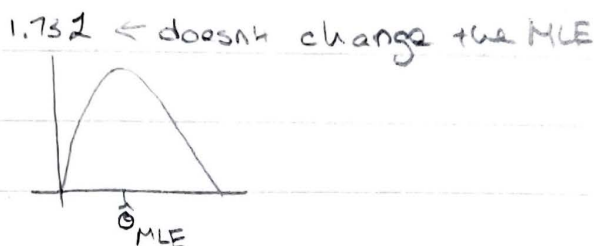 1.73L ← doesn't change the MLE
θ̂MLE